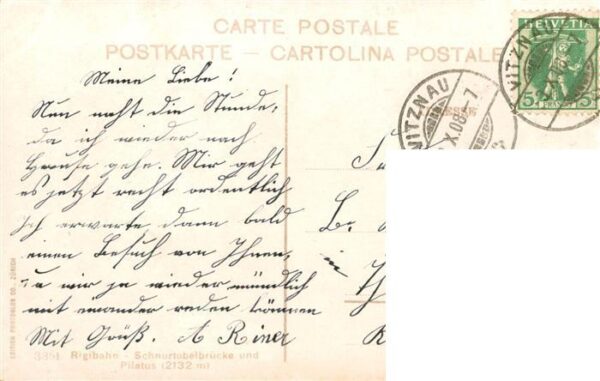 CARTE POSTALE
POSTKARTE – CARTOLINA POSTALE
HELVETIA
5 5
VITZNAU
VITZNAU
X.08.-7
ADRESSE
Meine Liebe!
Nun naht die Stunde,
da ich wieder nach
Hause gehe. Mir geht
es jetzt recht ordentlich
Ich erwarte dann bald
einen Besuch von Ihnen,
u wir ja wieder mündlich
mit einander reden können
Mit Grüß. A Riner
3851 Rigibahn – Schnurtobelbrücke und
Pilatus (2132 m)
EDITION PHOTOGLOB CO., ZÜRICH